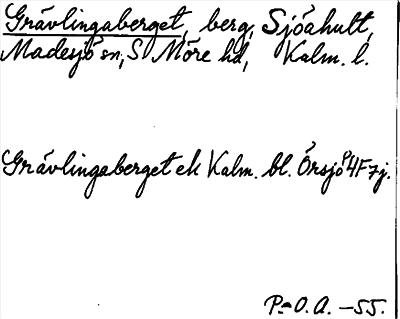 Grävlingaberget, berg, Sjöahult,
Madesjö sn, S Möre hd, Kalm. l.
Grävlingaberget ek Kalm. bl. Örsjö 4F7j.
P.-O.A. -55.